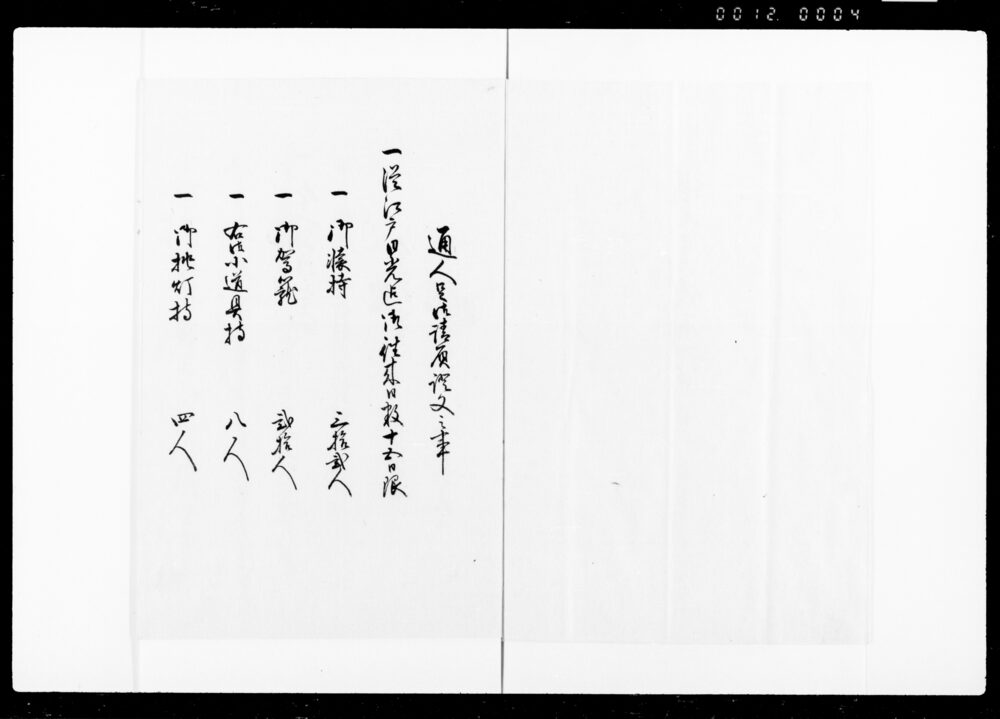 0012.0004
通人足御請負證文之事
一従江戸日光迄御往来日数十五日限
一 御長持 三拾弐人
一 御駕籠 弐拾人
一 右御小道具持 八人
一 御挑灯持 四人